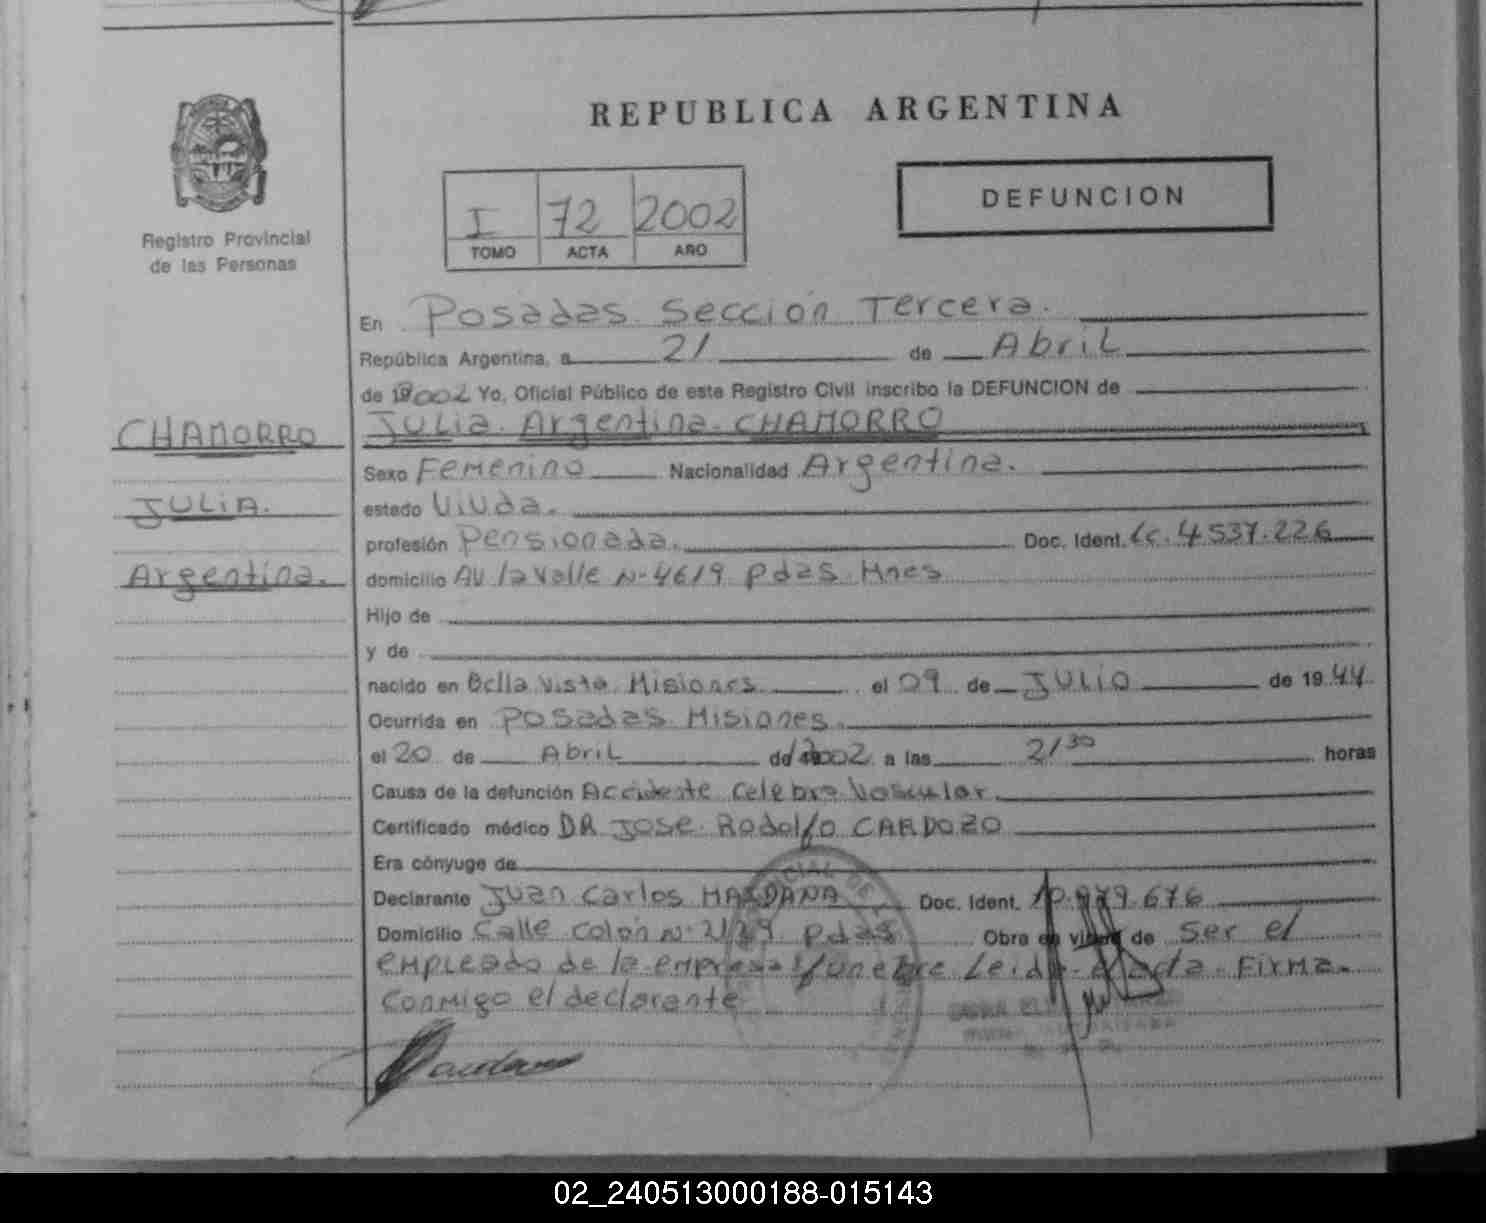 REPUBLICA ARGENTINA
DEFUNCION
I 72 2002
TOMO ACTA AÑO
Registro Provincial
de las Personas
En Posadas Sección Tercera.
República Argentina, a 21 de Abril
de 2002 Yo, Oficial Público de este Registro Civil inscribo la DEFUNCION de
CHAMORRO
JULIA
Argentina.
Julia Argentina CHAMORRO
Sexo Femenino Nacionalidad Argentina.
estado Viuda.
profesión Pensionada. Doc. Ident. Lc. 4.537.226
domicilio AV lavalle N-4619 Pdas Mnes
Hijo de
y de
nacido en Bella Vista Misiones el 09 de Julio de 1944
Ocurrida en Posadas Misiones.
el 20 de Abril de 2002 a las 21 30 horas
Causa de la defunción Accidente Celebro Vascular.
Certificado médico DR Jose Rodolfo CARDOZO
Era cónyuge de
Declarante Juan Carlos Doc. Ident.
Domicilio Calle Colon N- Pdas Obra en virtud de Ser el
empleado de la empresa funebre Leida Acta Firma
conmigo el declarante
02_240513000188-015143